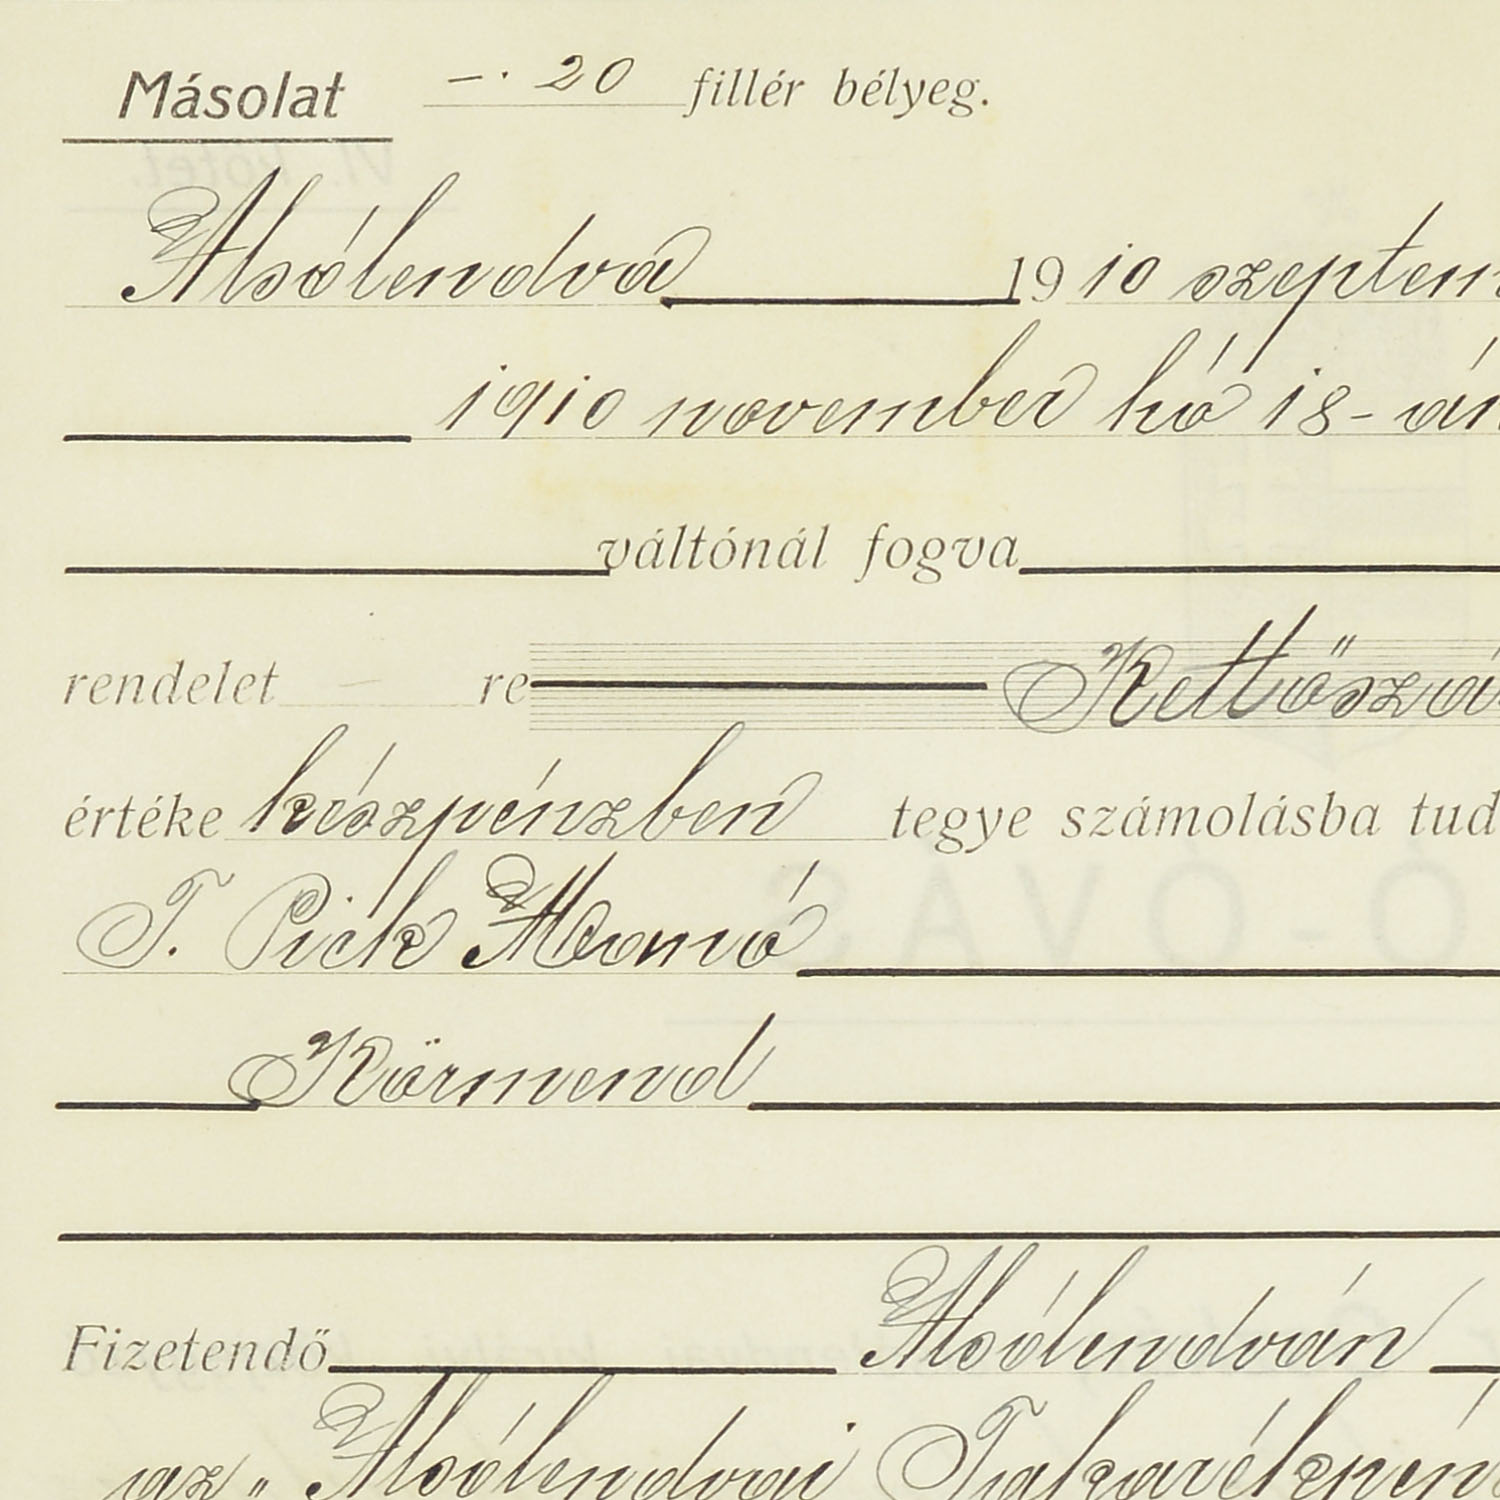 Másolat —· 20 fillér bélyeg.
Alsólendva 1910 szeptem
1910 november hó 18-án
váltónál fogva
rendelet — re Kettőszá
értéke készpénzben tegye számolásba tud
T. Pick
Körmend
Fizetendő Alsólendván
az „Alsólendvai Takarékpén